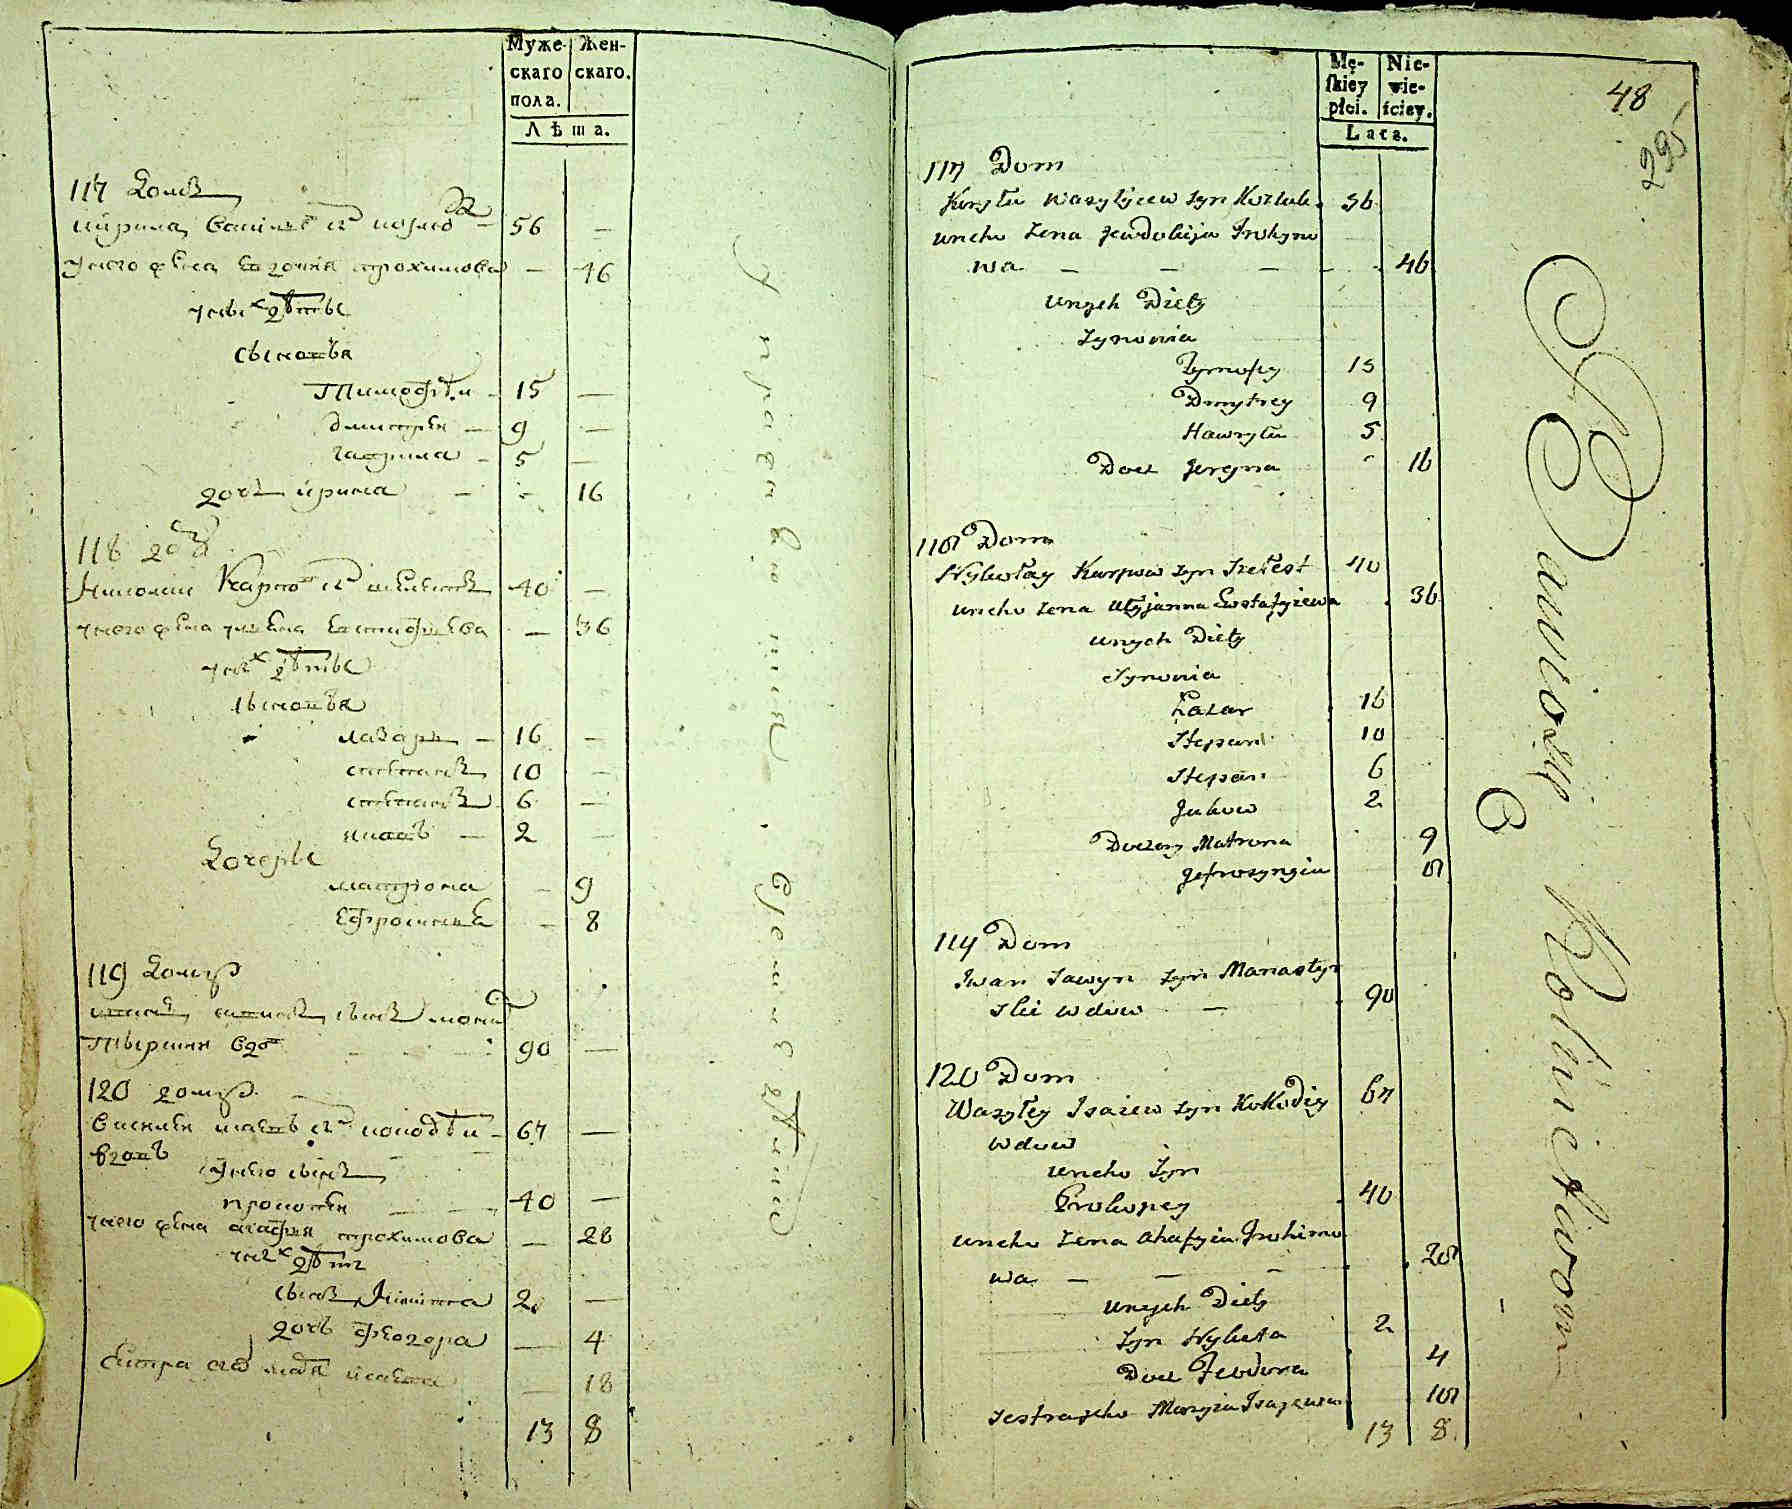 Муже- Жен-
скаго скаго.
пола.
Лѣта.
117 Домъ
Кирила Василевъ сн Козлюк 56 —
у него жена Евдокия Трохимова — 46
у них дѣти
сыновья
Тимофѣи 15 —
Дмитреи — 9 —
Гаврила — 5 —
дочь Ирина — - 16
118 дом
Николаи Карпов сн 40 —
у него жена Улиена Евстафиева — 36
у них дѣти
сыновья
Лазарь — 16 —
Степанъ 10 —
Степанъ 6 —
Иаковъ — 2 —
дочерѣ
Матрона — 9
Ефросиния — 8
119 Домъ
Иванъ Савинъ сынъ Мона
стырски вдов 90 —
120 домъ
Василеи Исаевъ сн Колодѣи 67 —
вдовъ
у него сынъ
Прокопеи 40 —
у него жена Агафия Трохимова — 28
у них дѣти
сынъ Микита 2 —
дочь Феодора — 4
Сестра его Марія Исаева — 18
13 8
Управляющий
Mę- Nie-
skiey wie-
płci. ściey.
Lata.
48
295
117 Dom
Kiryło Wasylijew syn Kozluk 56
uneho żena Jewdokija Trohymo
wa — — — - 46
unych Diety
Synowia
Tymofiy 15
Dmytrey 9
Hawryło 5
Docz Jeryna - 16
118 Dom
Nykołay Karpow syn Szełest 40
uneho żena Uljanna Ewstafyiewa 36
unych Diety
Synowia
Łazar 16
Stepan 10
Stepan 6
Jakow 2
Doczery Matrona 9
Jefrosyngia 8
119 Dom
Iwan Sawyn syn Manastyr
ski wdow — 90
120 Dom
Wasyley Isaiew syn Kołodiy 67
wdow
uneho Syn
Prokopey 40
uneho żena Ahafyia Trohimo
wa — — - 28
unych Diety
Syn Nykita 2
Doc Feodora 4
Sestra jeho Maryia Isajewa 18
13 8